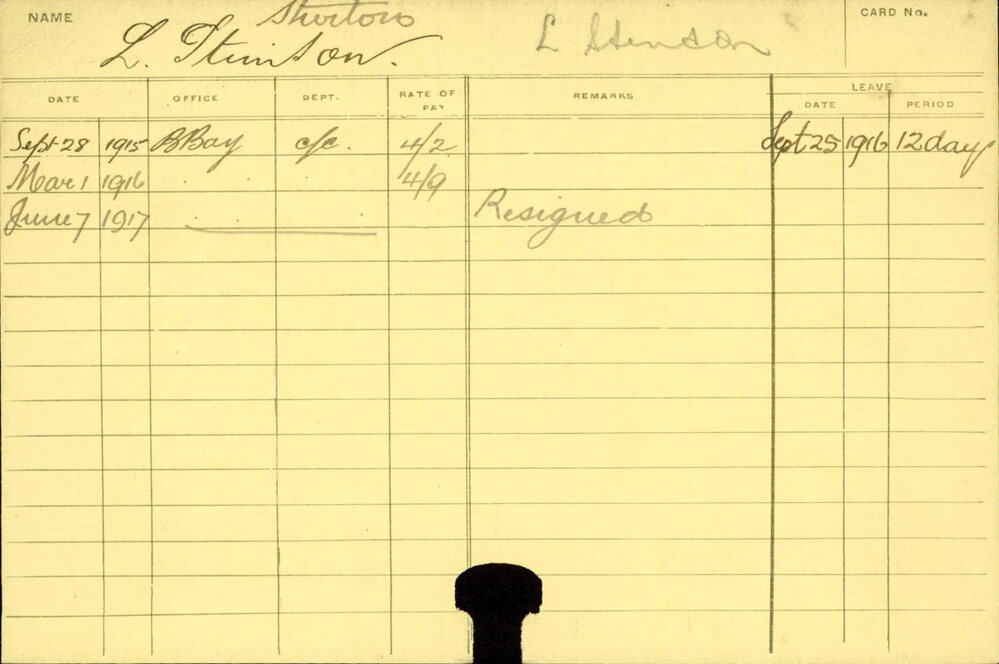 NAME
L. Stinson.
L Stinson
CARD No.
DATE OFFICE DEPT. RATE OF PAY REMARKS LEAVE
DATE PERIOD
Sept 28 1915 BBay c/c. 4/2 Sept 25 1916 12 days
Mar 1 1916 . . 4/9
June 7 1917 Resigned